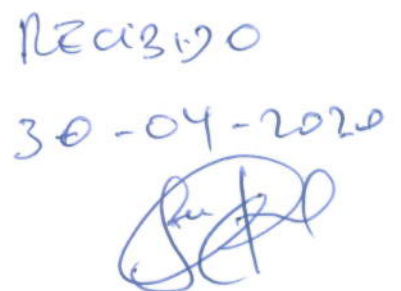 RECIBIDO
30-04-2020